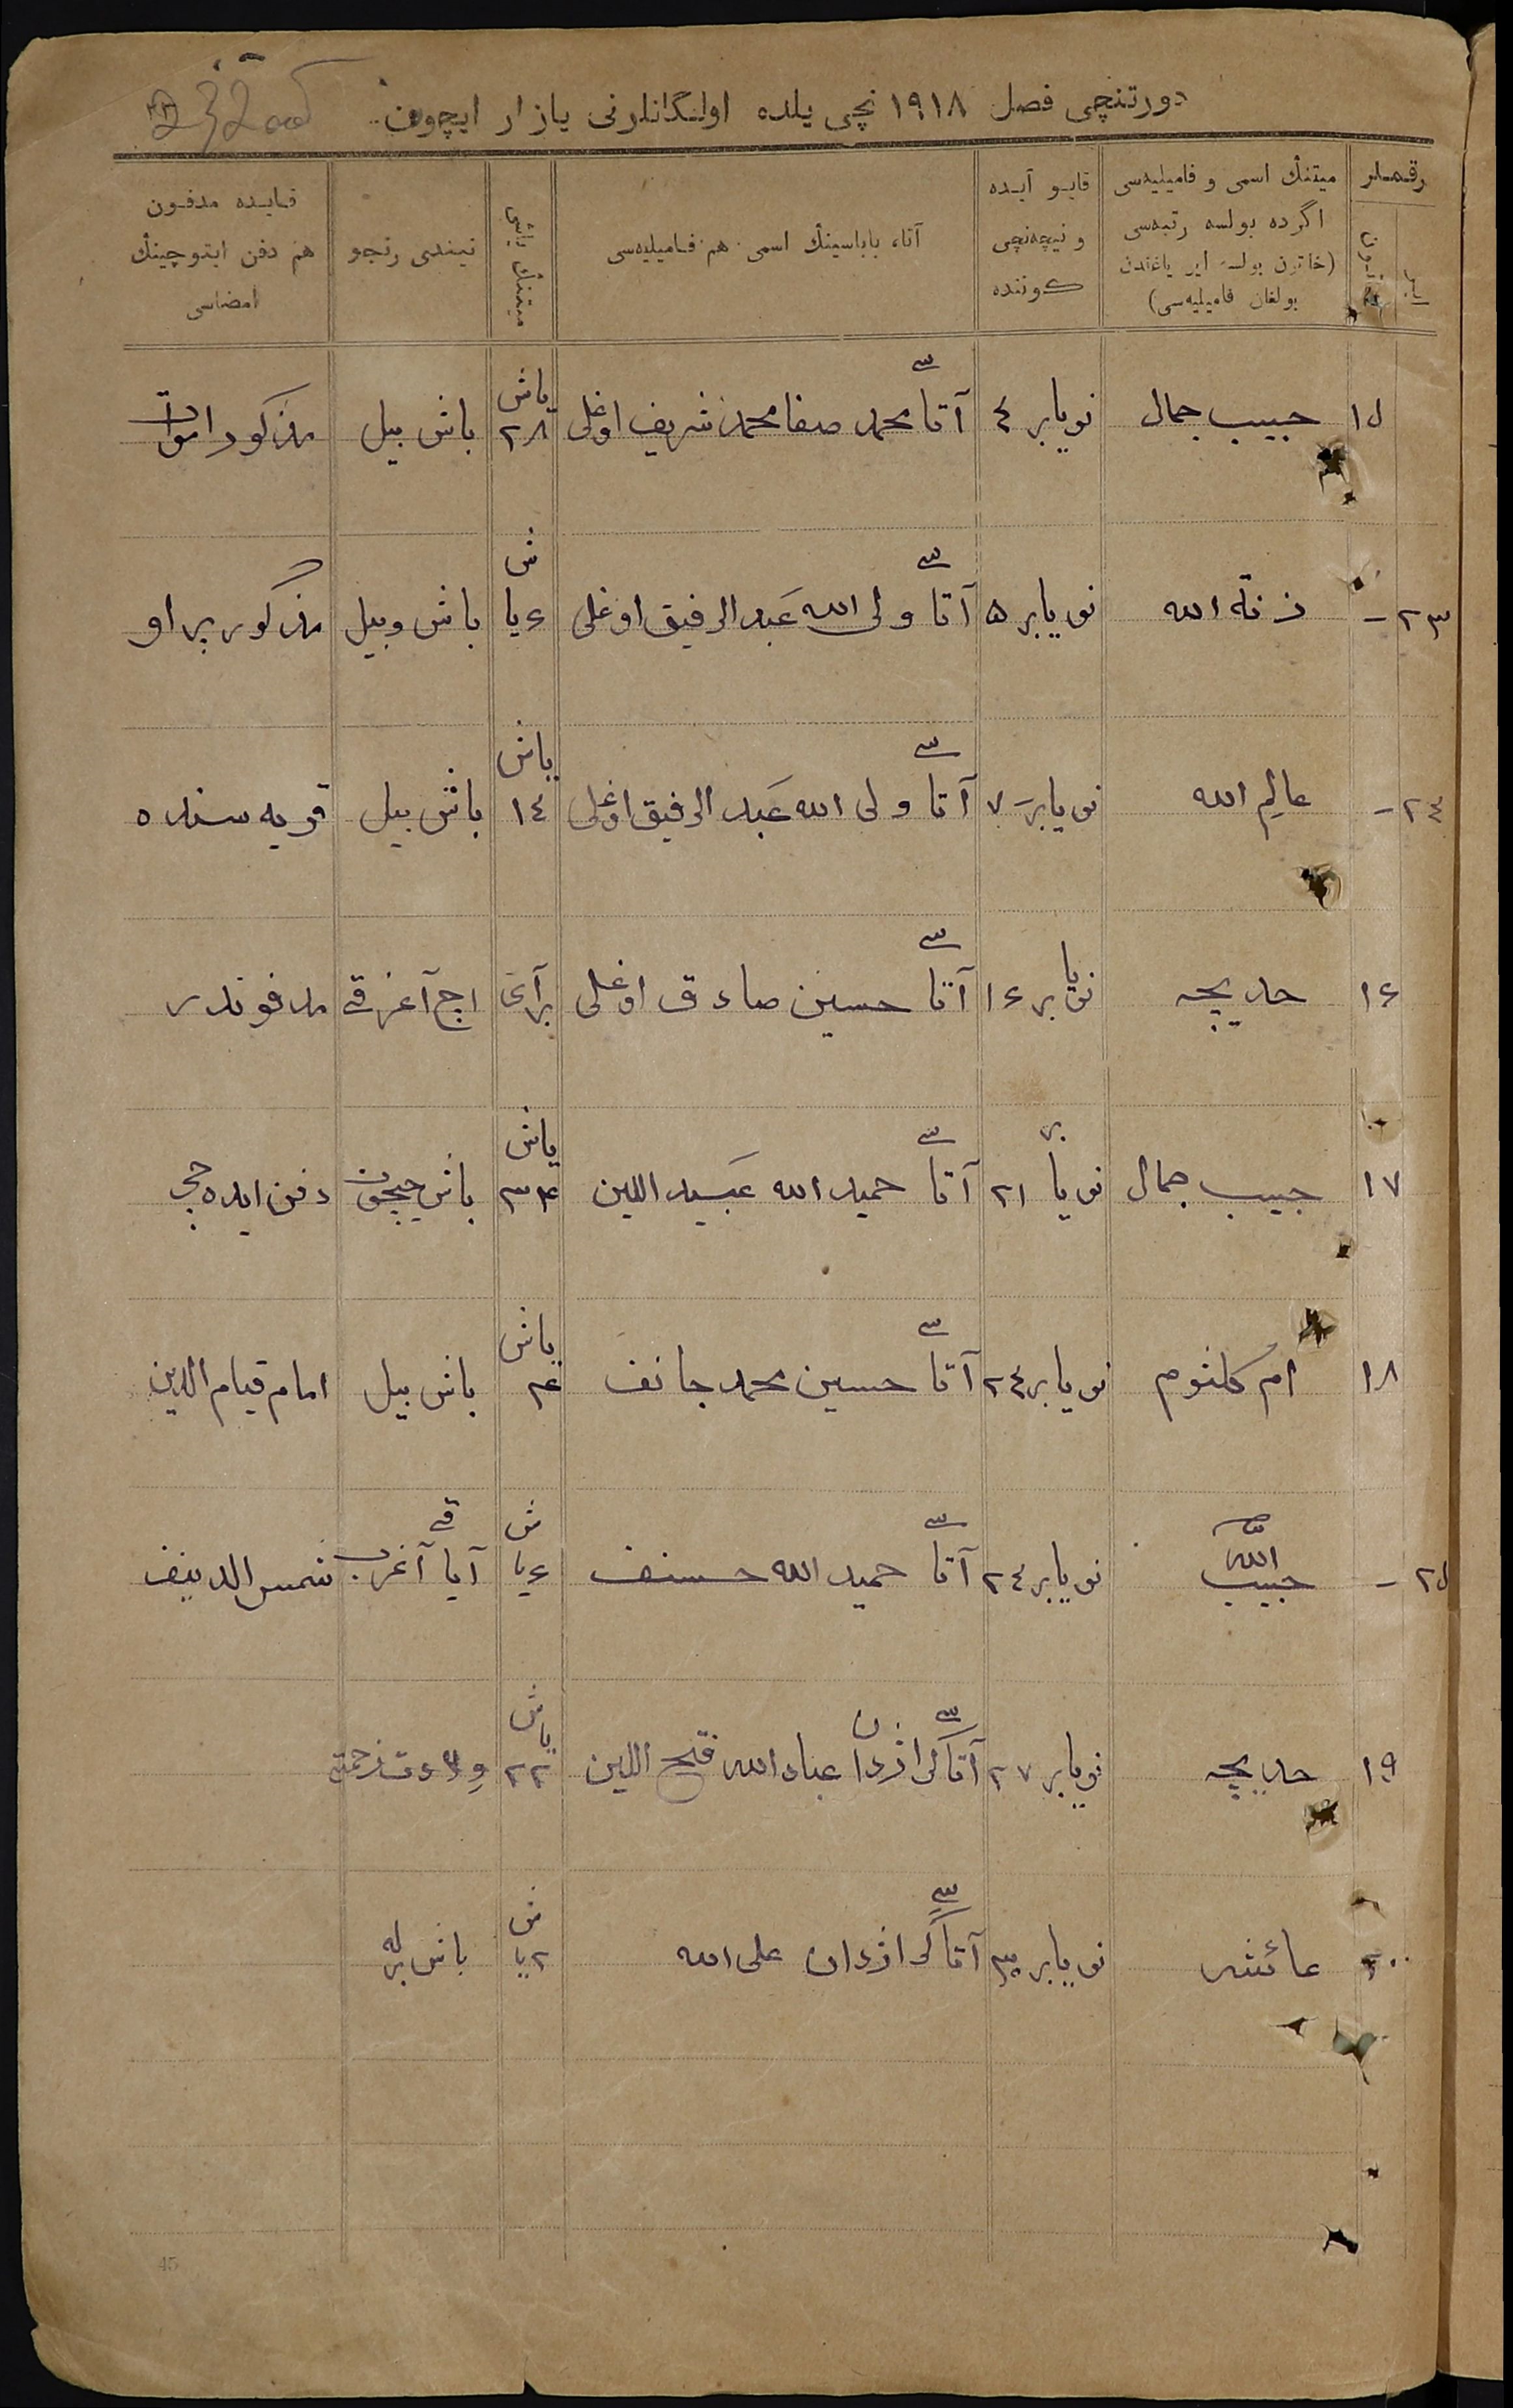 دورتنچی فصل ۱۹۱۸ نچی یلده اولنگانلرنی یازار ایچون
رقملر
میتنڭ اسمی و فامیلیه‌سی اگرده بولسه رتبه‌سی (خاتون بولسه ایر یاغندن بولغان فامیلیه‌سی)
قایو آیده و نیچه‌نچی كوننده
آتا، باباسینڭ اسمی هم فامیلیه‌سی
میتنڭ یاشی
نیندی رنجو
قایده مدفون هم دفن ایتوچینڭ امضاسی
۱۵ حبیب جمال نویابر ٤ آتاسی محمد صفا محمد شریف اوغلی ۲۸ یاش باش بیل مذكور اموات
۲۳ - نویابر ۵ آتاسی ولی الله عبد الرفیق اوغلی ٤ یاش باش و بیل مذكور براو
۲٤ - عالم الله نویابر ۷ آتاسی ولی الله عبد الرفیق اوغلی ۱٤ یاش باش بیل قریه سنده
۱۶ خدیجه نویابر ۱۶ آتاسی حسین صادق اوغلی برآی اچ آغرقی مدفوندر
۱۷ حبیب جمال نویابر ۲۱ آتاسی حمید الله عبید الدین ۳۴ یاش باش چیچون دفن ایده‌چی
۱۸ ام كلثوم نویابر ۲٤ آتاسی حسین محمد جانف یاش باش بیل امام قیام الدین
۲۵ - حبیب الله نویابر ۲٤ آتاسی حمید الله حسنف ٤ یاش آیا آغریقی شمس الدینف
۱۹ خدیجه نویابر ۲۷ آتاسی عباد الله فتح الدین ۲۲ یاش
۲۰ عائشه نویابر ۳۰ آتاسی علی الله ۲ یاش باش برله
45